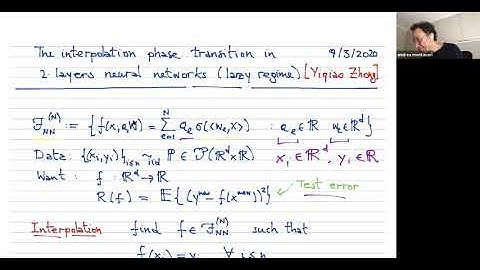 The interpolation phase transition in 9/3/2020
2-layers neural networks (lazy regime) [Yiqiao Zhong]
F_NN^(N) := { f(x; a, W) = Σ_{ℓ=1}^N a_ℓ σ(<w_ℓ, x>) : a_ℓ ∈ ℝ w_ℓ ∈ ℝ^d }
Data: {(x_i, y_i)}_{i≤n} ~iid ℙ ∈ 𝒫(ℝ^d × ℝ) x_i ∈ ℝ^d, y_i ∈ ℝ
Want: f: ℝ^d → ℝ
R(f) = 𝔼{(y^new − f(x^new))²} ← Test error
Interpolation find f ∈ F_NN^(N) such that
f(x_i) = y_i ∀ i ≤ n